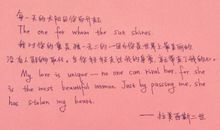 每一天的太阳因你而升起
The one for whom the sun shines.
我对你的爱是独一无二的一因为你是世界上最美丽的
当你轻轻走过我的身旁，就带走了我的心。
My love is unique — no one can rival her, for she
is the most beautiful woman. Just by passing, she
has stolen my heart.
—— 拉美西斯二世